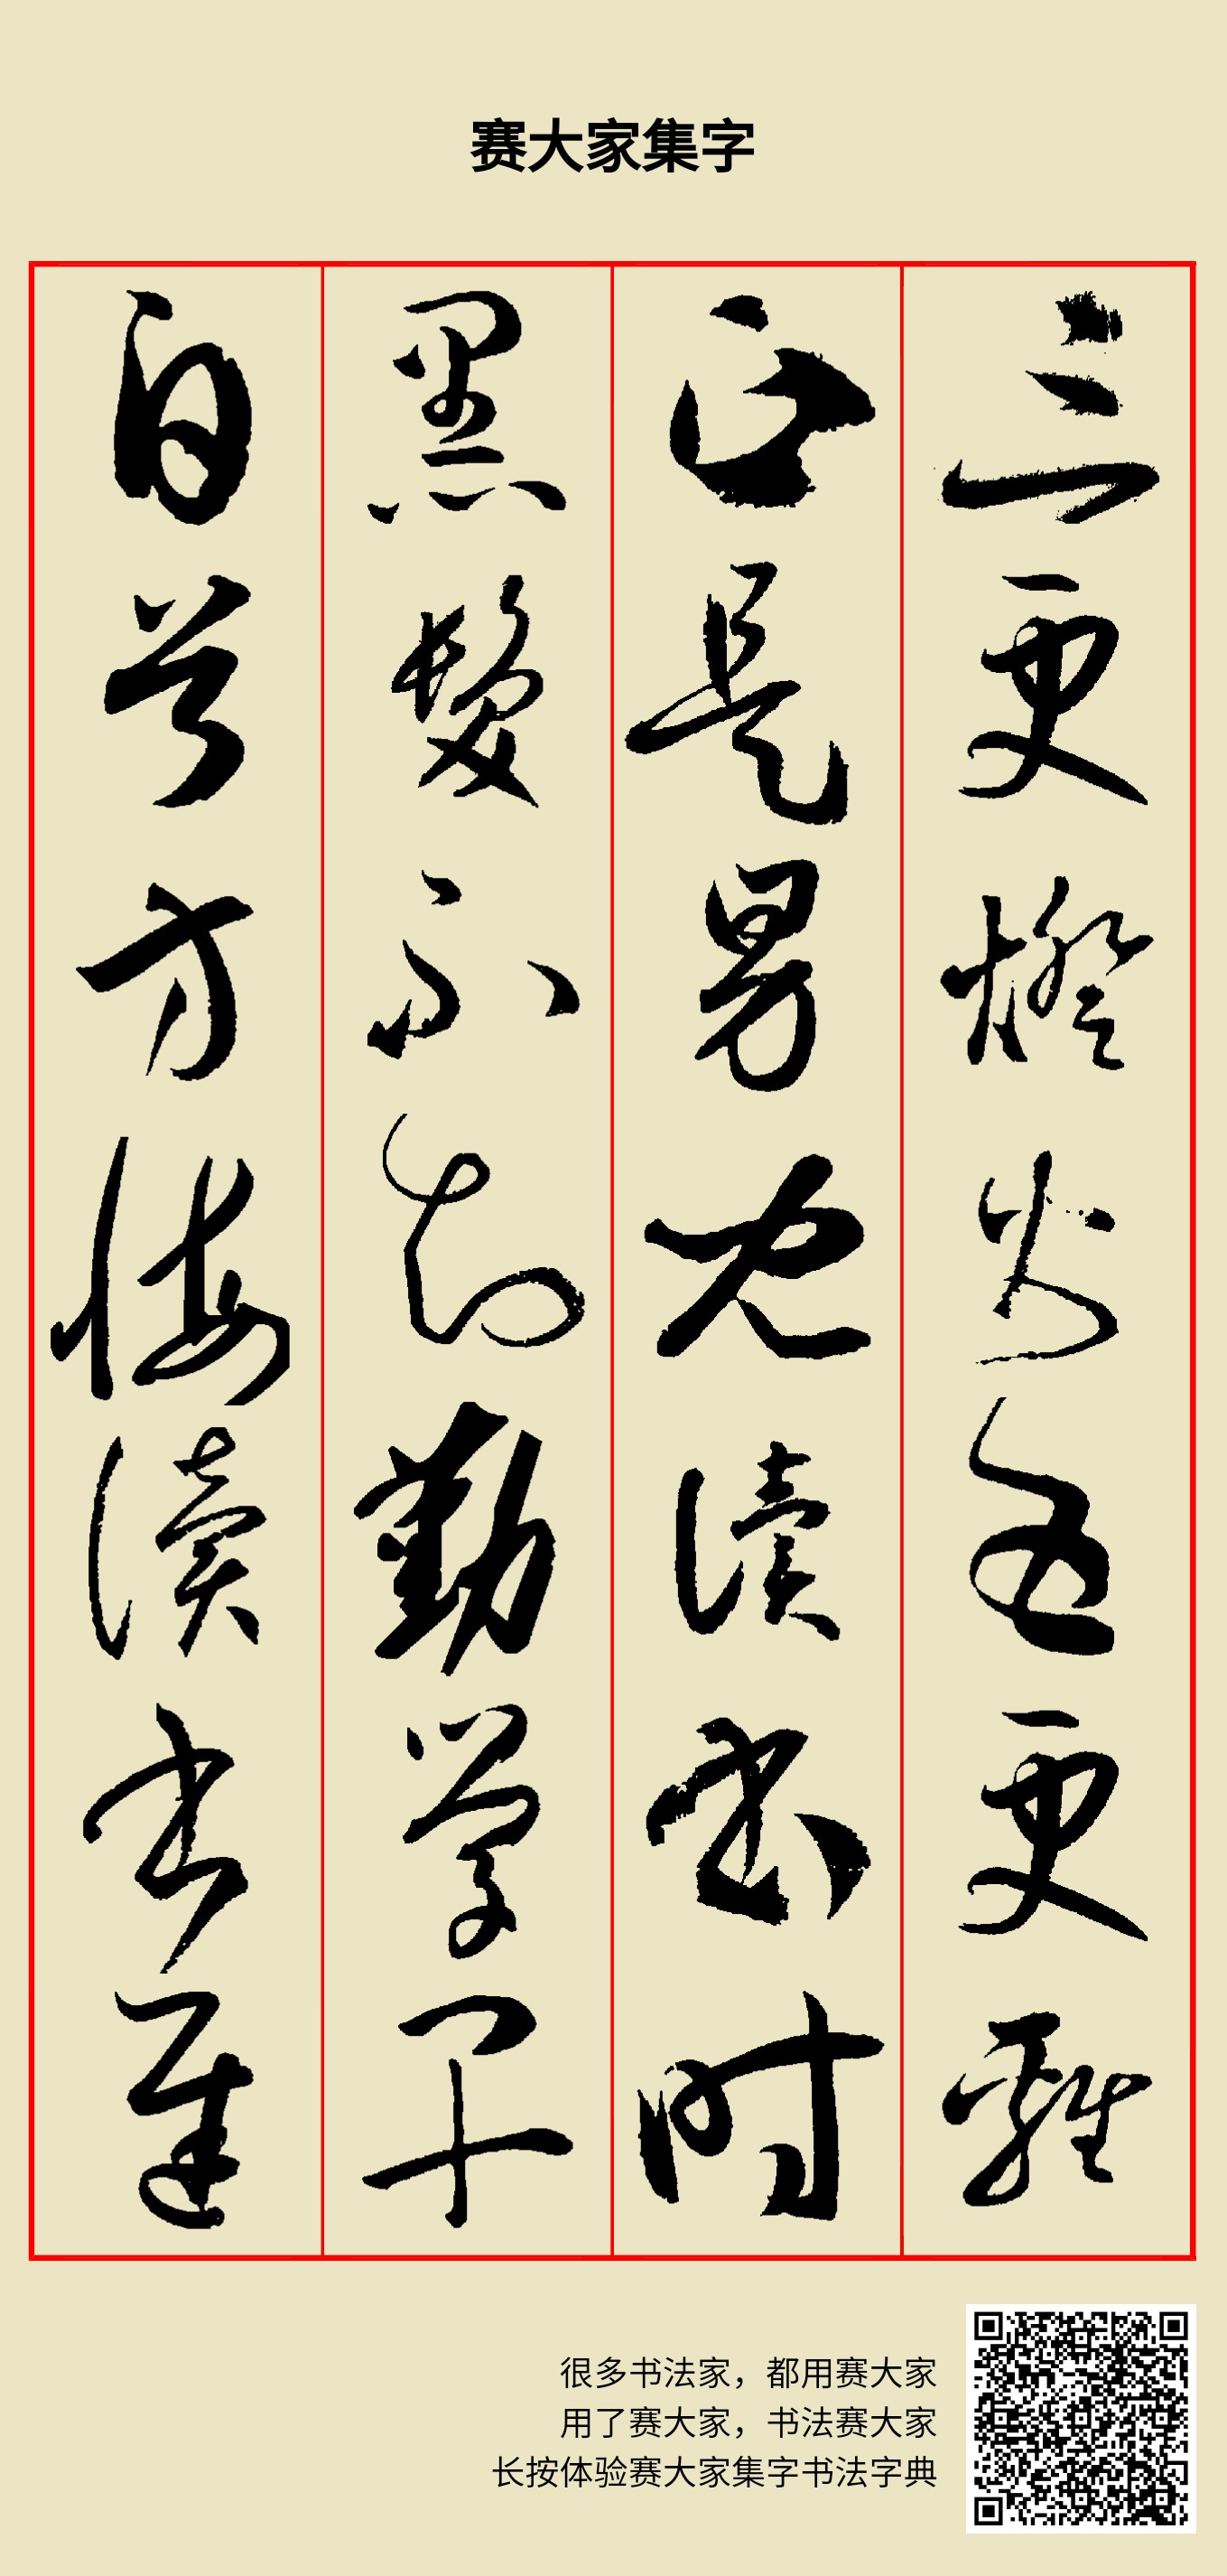 赛大家集字
三更燈火五更雞
正是男兒读书时
黑髮不知勤學早
白首方悔读书遲
很多书法家，都用赛大家
用了赛大家，书法赛大家
长按体验赛大家集字书法字典